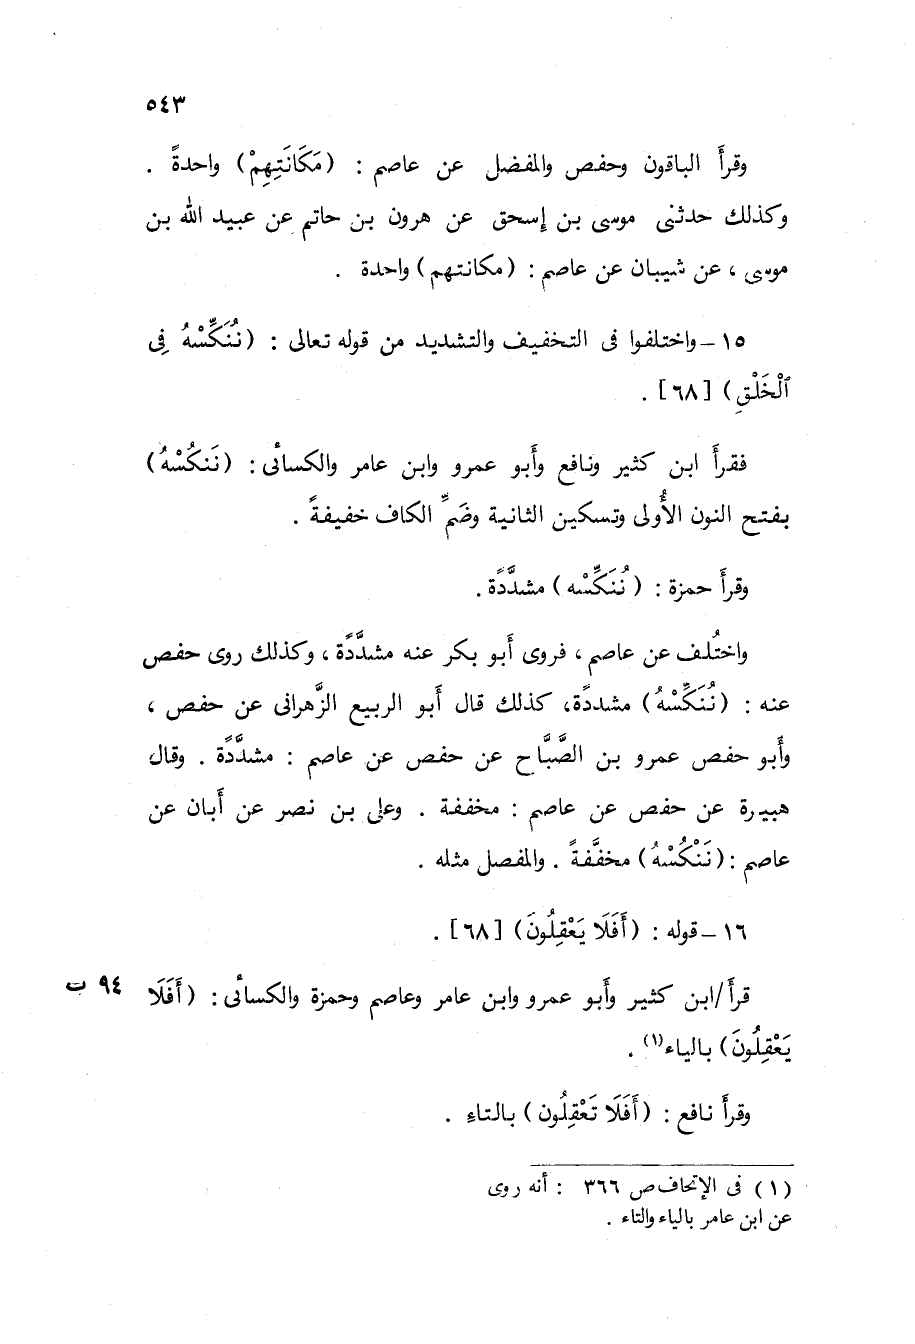 ٥٤٣
وقرأَ الباقون وحفص والمفضل عن عاصم : (مَكَانَتِهِمْ) واحدةً .
وكذلك حدثنى موسى بن إسحق عن هرون بن حاتم عن عبيد الله بن
موسى ، عن شيبان عن عاصم : (مكانتهم) واحدة .
١٥ – واختلفوا فى التخفيف والتشديد من قوله تعالى : (نُنَكِّسْهُ فِى
ٱلْخَلْقِ) [٦٨] .
فقرأَ ابن كثير ونافع وأَبو عمرو وابن عامر والكسائى : (نَنكُسْهُ)
بفتح النون الأُولى وتسكين الثانية وضَمِّ الكاف خفيفةً .
وقرأَ حمزة : (نُنَكِّسْه) مشدَّدًة .
واختُلف عن عاصم ، فروى أَبو بكر عنه مشدَّدًة ، وكذلك روى حفص
عنه : (نُنَكِّسْهُ) مشددًة، كذلك قال أَبو الربيع الزَّهرانى عن حفص ،
وأَبو حفص عمرو بن الصَّبَّاح عن حفص عن عاصم : مشدَّدًة . وقال
هبيرة عن حفص عن عاصم : مخففة . وعلى بن نصر عن أَبان عن
عاصم : (نَنْكُسْهُ) مخفَّفةً . والمفصل مثله .
١٦ – قوله : (أَفَلَا يَعْقِلُونَ) [٦٨] .
قرأَ/ابن كثير وأَبو عمرو وابن عامر وعاصم وحمزة والكسائى : (أَفَلَا ٩٤ ب
يَعْقِلُونَ) بالياء(١) .
وقرأَ نافع : (أَفَلَا تَعْقِلُون) بالتاءِ .
(١) فى الإتحاف ص ٣٦٦ : أنه روى
عن ابن عامر بالياء والتاء .